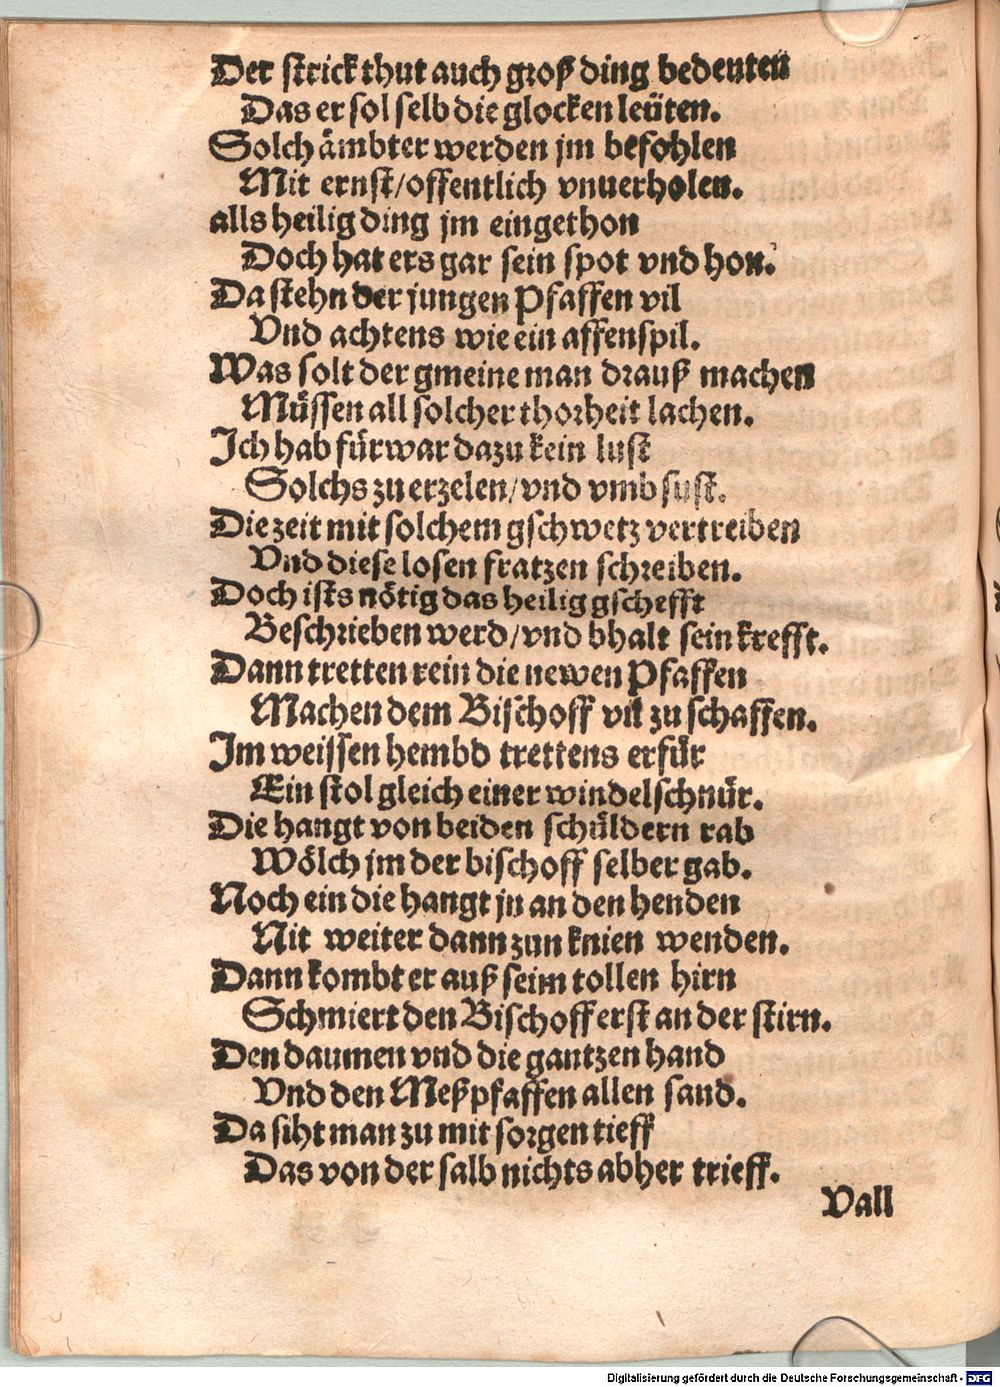 Der strick thut auch groß ding bedeuten
Das er sol selb die glocken leüten.
Solch ämbter werden jm befohlen
Mit ernst/offentlich vnuerholen.
alls heilig ding jm eingethon
Doch hat ers gar sein spot vnd hon.
Da stehn der jungen Pfaffen vil
Vnd achtens wie ein affenspil.
Was solt der gmeine man drauß machen
Müssen all solcher thorheit lachen.
Ich hab fürwar dazu kein lust
Solchs zu erzelen/vnd vmb sust.
Die zeit mit solchem gschwetz vertreiben
Vnd diese losen fratzen schreiben.
Doch ists nötig das heilig gschefft
Beschrieben werd/vnd bhalt sein krefft.
Dann tretten rein die newen Pfaffen
Machen dem Bischoff vil zu schaffen.
Im weissen hembd trettens erfür
Ein stol gleich einer windelschnür.
Die hangt von beiden schüldern rab
Wölch jm der bischoff selber gab.
Noch ein die hangt jn an den henden
Nit weiter dann zun knien wenden.
Dann kombt er auß seim tollen hirn
Schmiert den Bischoff erst an der stirn.
Den daumen vnd die gantzen hand
Vnd den Meßpfaffen allen sand.
Da siht man zu mit sorgen tieff
Das von der salb nichts abher trieff.
Vall
Digitalisierung gefördert durch die Deutsche Forschungsgemeinschaft - DFG